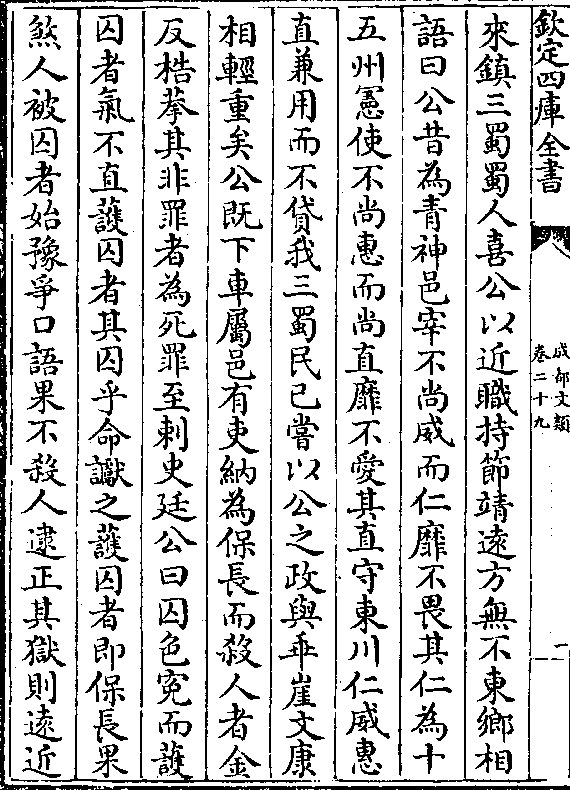 欽定四庫全書
成都文類
卷二十九
一
來鎮三蜀蜀人喜公以近職持節靖遠方無不東鄉相
語曰公昔為青神邑宰不尚威而仁靡不畏其仁為十
五州憲使不尚惠而尚直靡不愛其直守東川仁威惠
直兼用而不貸我三蜀民已嘗以公之政與乖崖文康
相輕重矣公既下車屬邑有吏納為保長而殺人者金
反梏拲其非罪者為死罪至刺史廷公曰囚色寃而護
囚者氣不直護囚者其囚乎命讞之護囚者即保長果
煞人被囚者始豫爭口語果不殺人逮正其獄則遠近